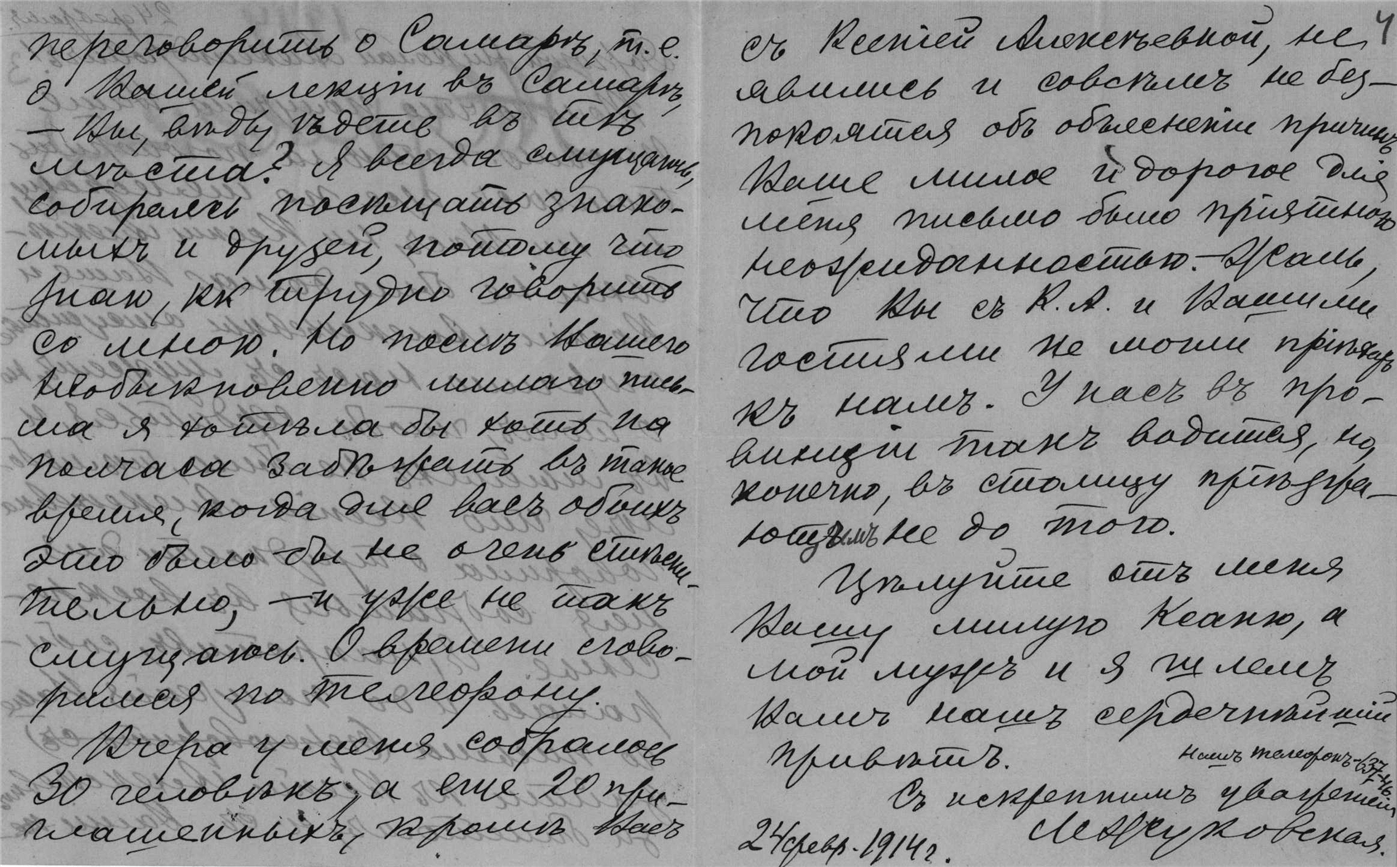 переговорить о Самарѣ, т.е.
о Вашей лекціи въ Самарѣ,
— Вы, вѣдь, ѣдете въ тѣ
мѣста? Я всегда смущаюсь,
собираясь посѣщать знако-
мыхъ и друзей, потому что
знаю, кк трудно говорить
со мною. Но послѣ Вашего
необыкновенно милаго пись-
ма я хотѣла бы хоть на
полчаса забѣжать въ такое
время, когда для васъ обоихъ
это было бы не очень стѣсни-
тельно, — и уже не такъ
смущаюсь. О времени сгово-
римся по телефону.
Вчера у меня собралось
30 человѣкъ, а еще 20 при-
глашенныхъ, кромѣ Васъ
4
съ Ксеніей Алексѣевной, не
явились и совсѣмъ не без-
покоятся объ объясненіи причинъ
Ваше милое и дорогое для
меня письмо было пріятною
неожиданностью. — Жаль,
что Вы съ К.А. и Вашими
гостями не могли пріѣхать
къ намъ. У насъ въ про-
винціи такъ водится, но,
конечно, въ столицу пріѣзжа-
ющимъ не до того.
Цѣлуйте отъ меня
Вашу милую Ксаню, а
мой мужъ и я шлемъ
Вамъ нашъ сердечнѣйшій
привѣтъ.
Нашъ телефонъ — 637-46.
Съ искреннимъ уваженіемъ
24 февр. 1914 г.
Чуковская.